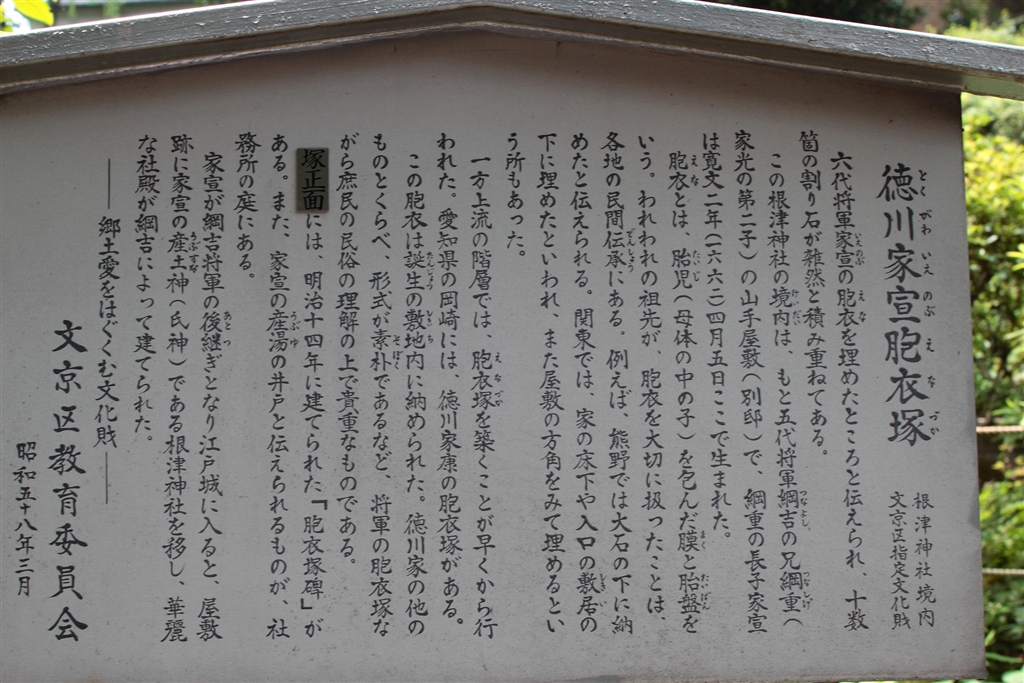 徳川家宣胞衣塚
とくがわいえのぶえなづか
根津神社境内
文京区指定文化財
六代将軍家宣の胞衣を埋めたところと伝えられ、十数
いえのぶ えな
箇の割り石が雑然と積み重ねてある。
この根津神社の境内は、もと五代将軍綱吉の兄綱重(
けいだい つなよし つなしげ
家光の第二子)の山手屋敷(別邸)で、綱重の長子家宣
は寛文二年(一六六二)四月五日ここで生まれた。
胞衣とは、胎児(母体の中の子)を包んだ膜と胎盤を
えな たいじ まく たいばん
いう。われわれの祖先が、胞衣を大切に扱ったことは、
各地の民間伝承にある。例えば、熊野では大石の下に納
でんしょう
めたと伝えられる。関東では、家の床下や入口の敷居の
しきい
下に埋めたといわれ、また屋敷の方角をみて埋めるとい
う所もあった。
一方上流の階層では、胞衣塚を築くことが早くから行
えなづか
われた。愛知県の岡崎には、徳川家康の胞衣塚がある。
この胞衣は誕生の敷地内に納められた。徳川家の他の
たんじょう しきち
ものとくらべ、形式が素朴であるなど、将軍の胞衣塚な
そぼく
がら庶民の民俗の理解の上で貴重なものである。
塚正面には、明治十四年に建てられた「胞衣塚碑」が
ある。また、家宣の産湯の井戸と伝えられるものが、社
うぶゆ
務所の庭にある。
家宣が綱吉将軍の後継ぎとなり江戸城に入ると、屋敷
あとつ
跡に家宣の産土神(氏神)である根津神社を移し、華麗
うぶすな
な社殿が綱吉によって建てられた。
――郷土愛をはぐくむ文化財――
文京区教育委員会
昭和五十八年三月